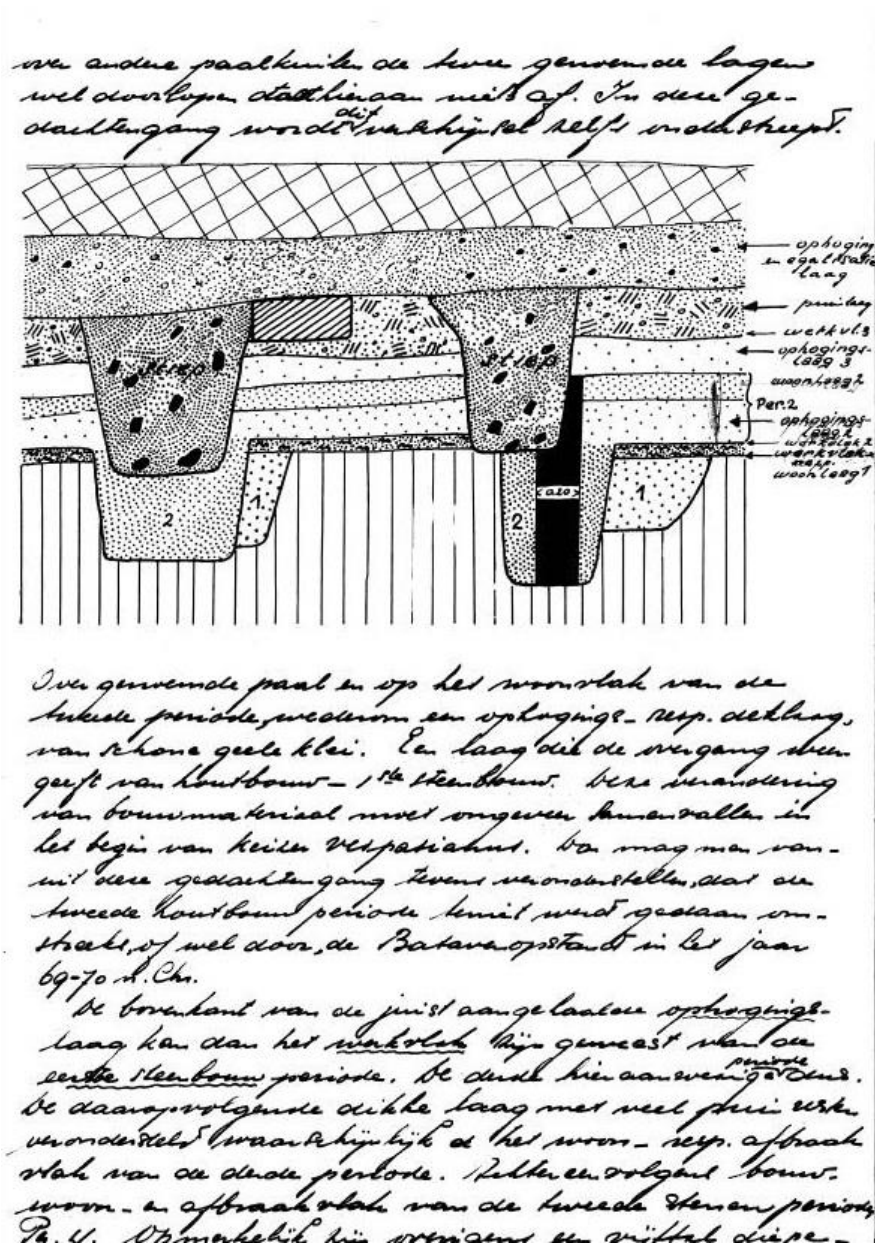 over andere paalkuilen de twee genoemde lagen
wel doorlopen doet hieraan niets af. In deze ge-
dachtengang wordt dit verschijnsel zelfs onderstreept.
ophoging
en egalisatie
laag
puinlaag
werkvl.3
ophogings-
laag 3
woonlaag 2
Per.2
ophogings-
laag 2
werkvlak 2
werkvlak
resp.
woonlaag 1
1
2
0.20
2
1
Over genoemde paal en op het woonvlak van de
tweede periode, wederom een ophogings- resp. deklaag,
van schone gele klei. Een laag die de overgang weer
geeft van houtbouw - 1ste steenbouw. Deze verandering
van bouwmateriaal moet ongeveer samenvallen in
het begin van keizer Vespasianus. Dan mag men van-
uit deze gedachtengang tevens veronderstellen, dat de
tweede houtbouw periode teniet werd gedaan om-
streeks, of wel door, de Batavenopstand in het jaar
69-70 n. Chr.
De bovenkant van de juist aangehaalde ophogings-
laag kan dan het werkvlak zijn geweest van de
eerste steenbouw periode. De derde hier aanwezige periode dus.
De daaropvolgende dikke laag met veel puin
veronderstelt waarschijnlijk het woon- resp. afbraak
vlak van de derde periode. Achtereenvolgens bouw-
woon- en afbraakvlak van de tweede stenen periode
Pe. 4. Opmerkelijk zijn overigens een vijftal diepe-